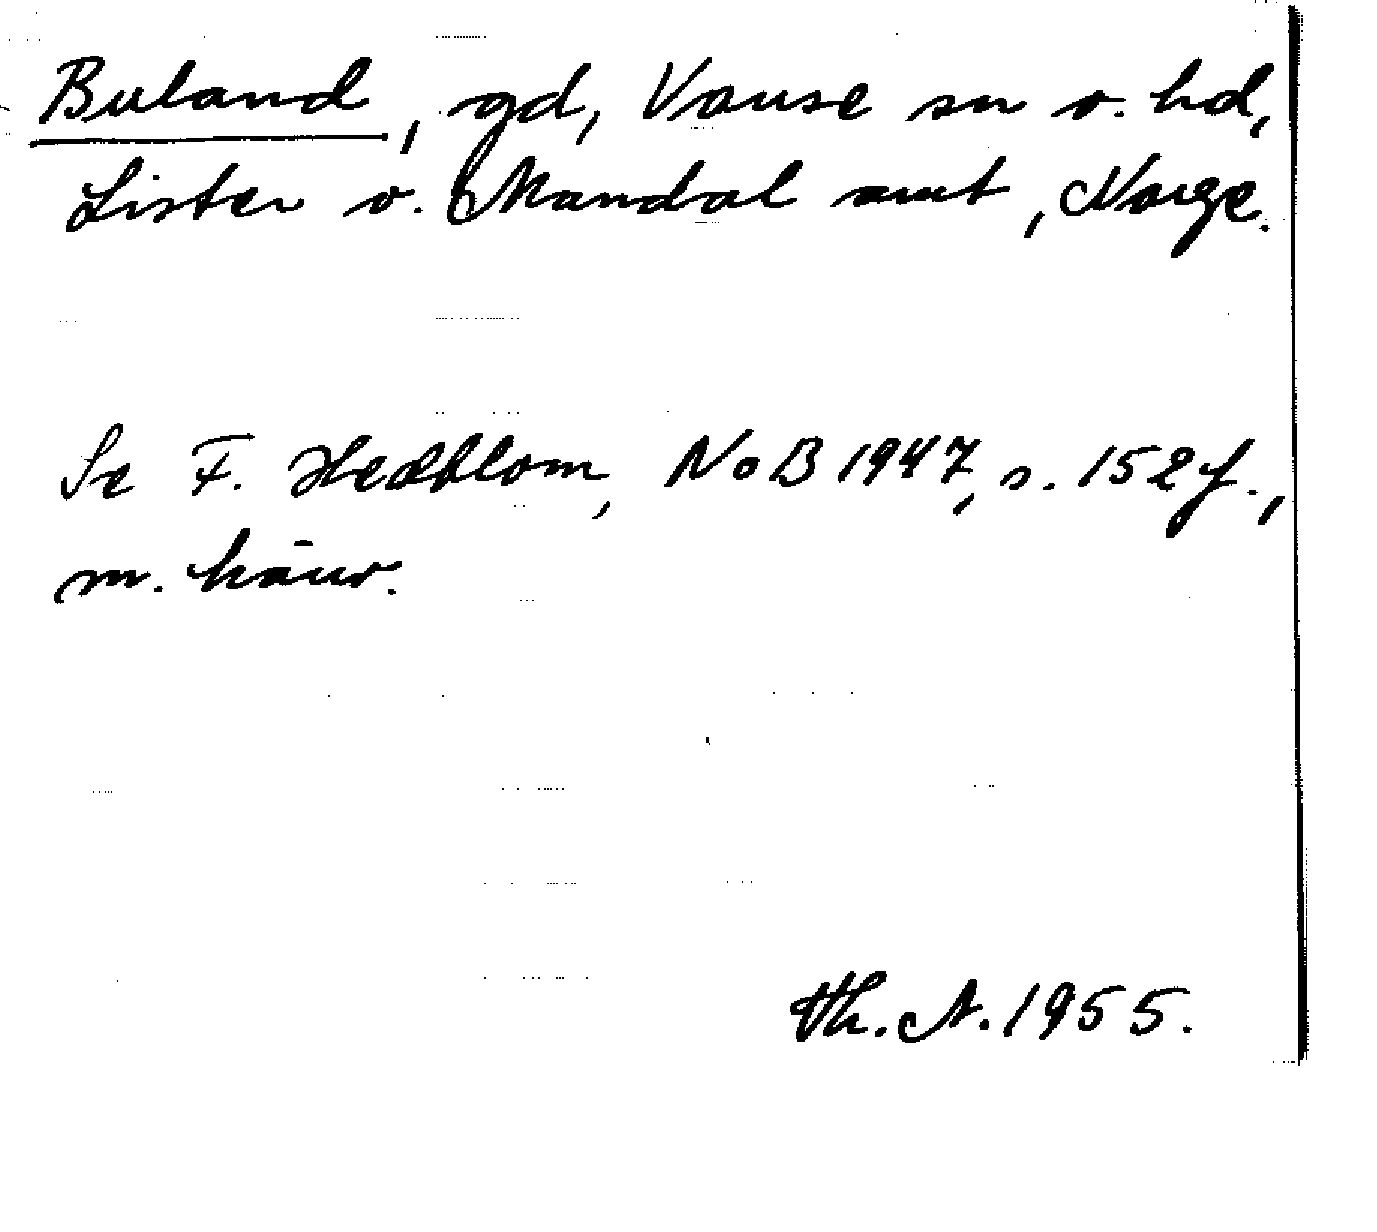 Buland, gd, Vanse sn o. hd,
Lister o. Mandal amt, Norge.
Se F. Hedblom, NoB 1947, s. 152 f.,
m. hänv.
Th. A. 1955.